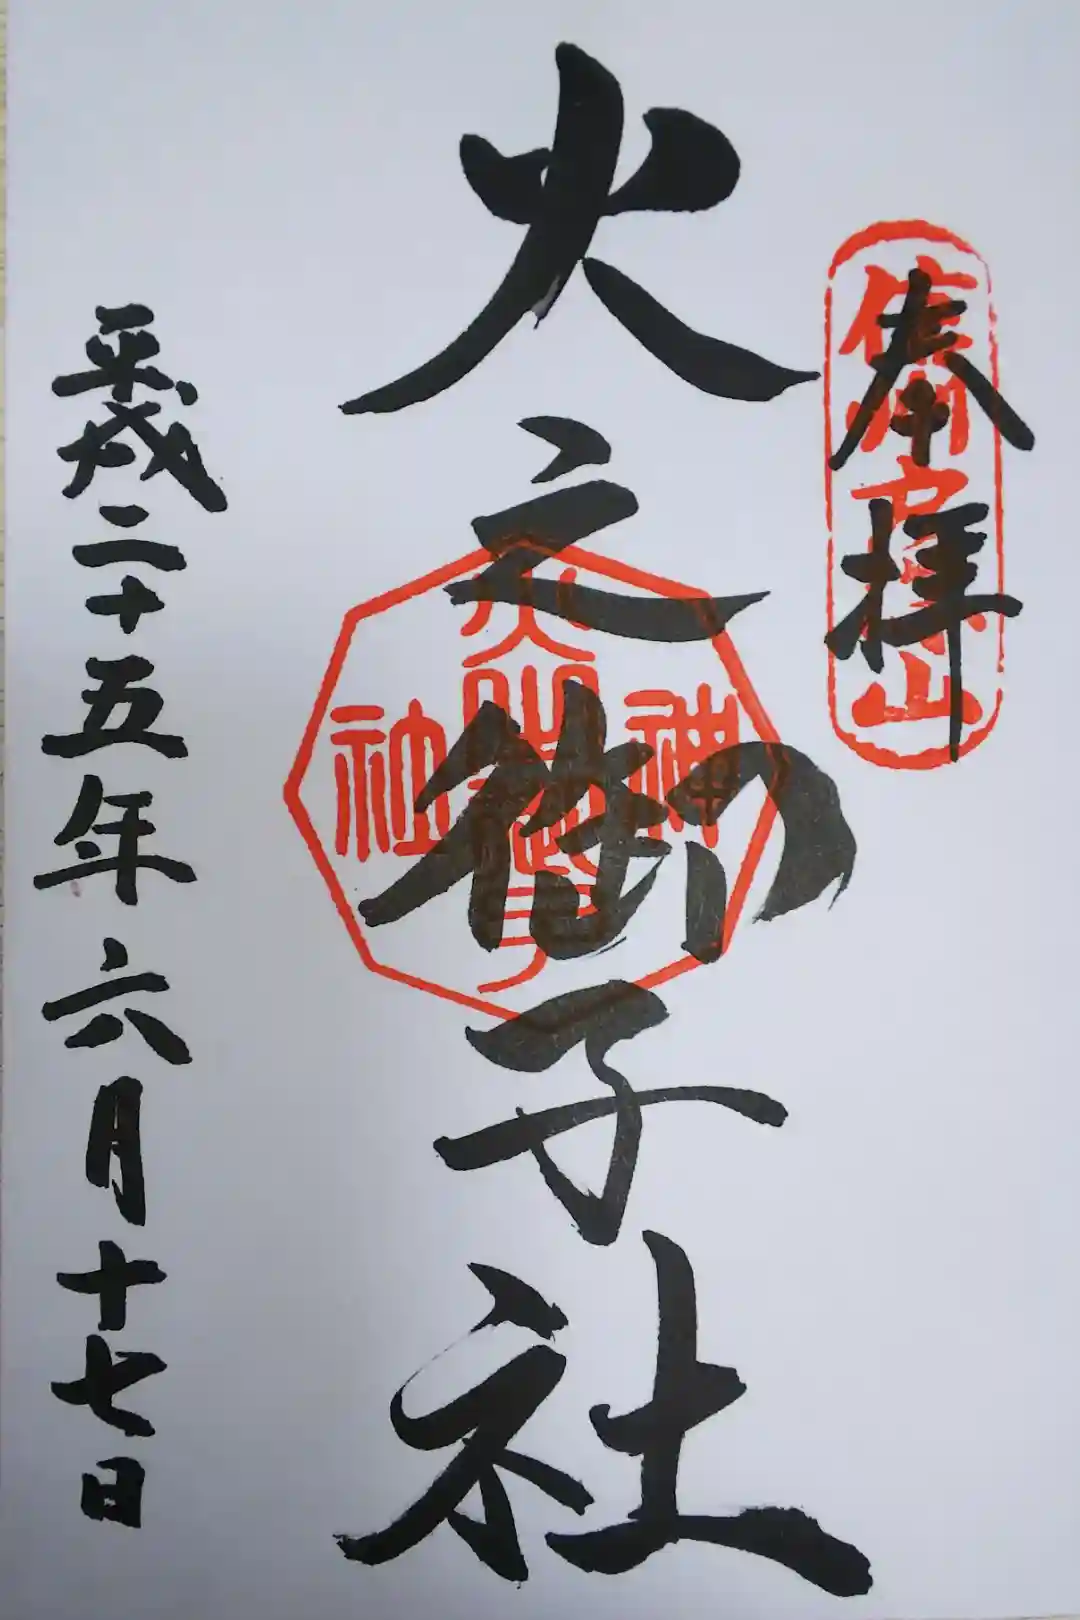 奉拝
信州戸隠山
火之御子社
神
火之御子
社
平成二十五年六月十七日